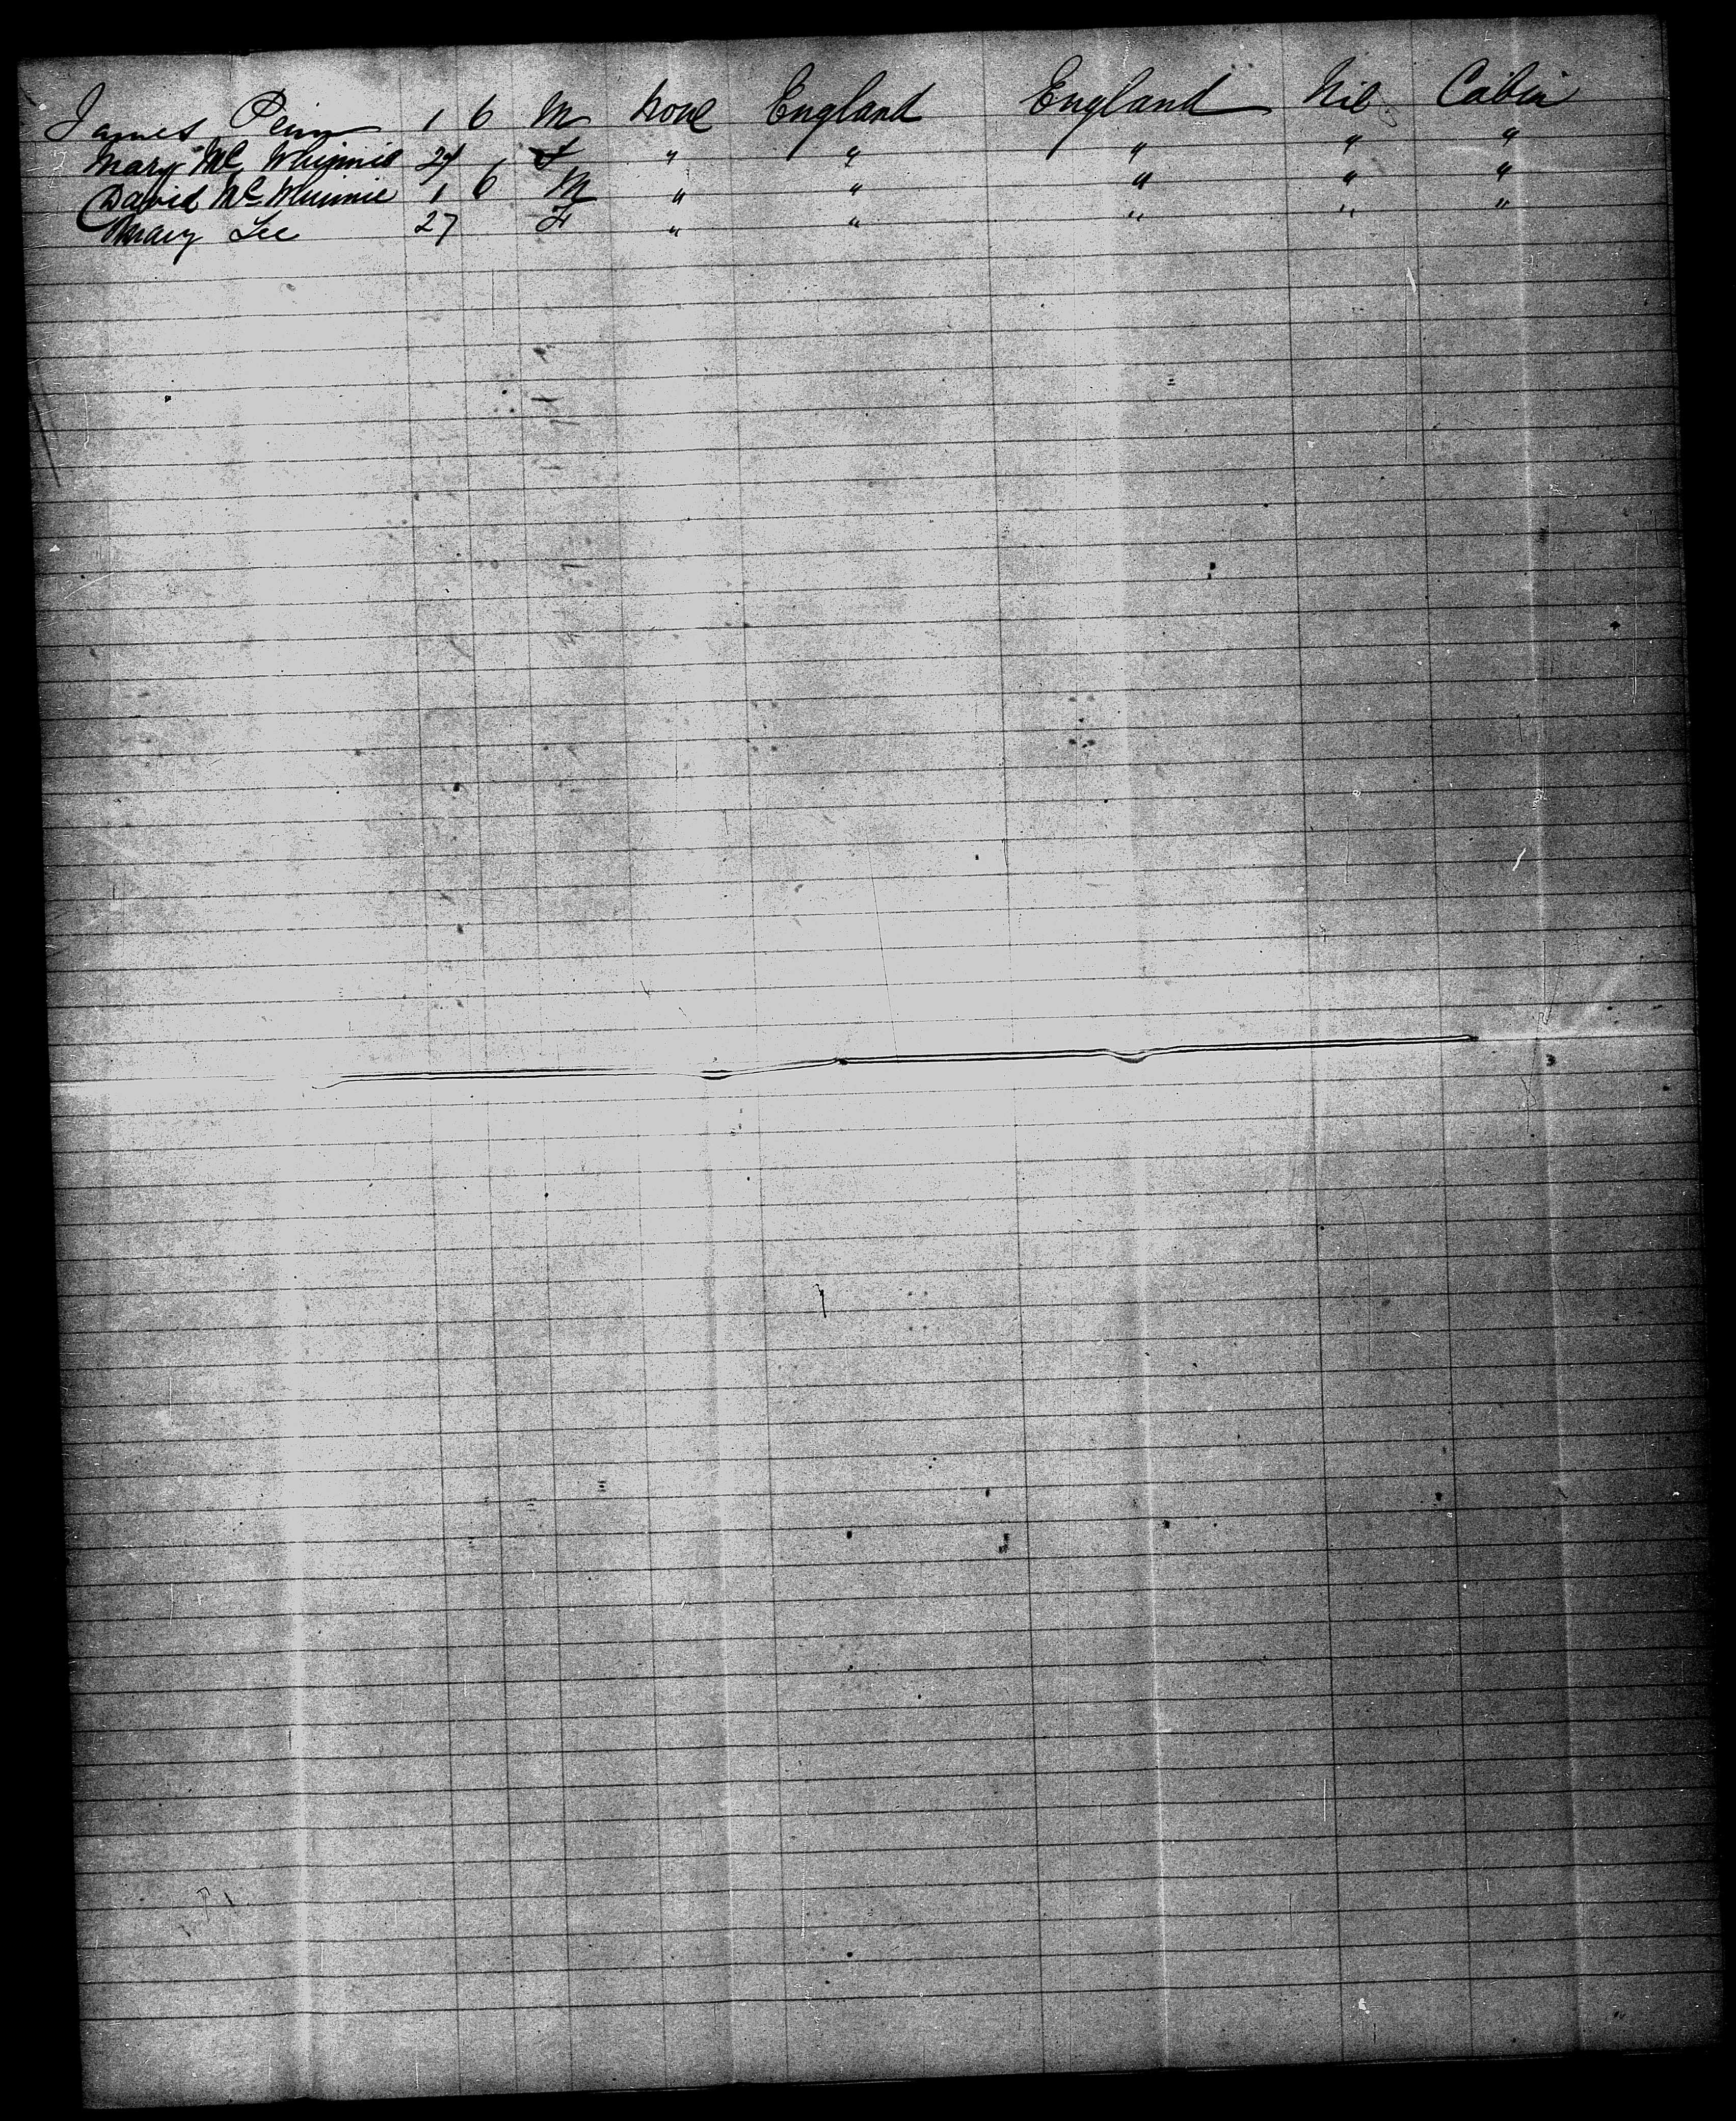 James Penn 1 6 M None England England Nil Cabin
Mary Mc Whinnie 24 F " " " " "
David Mc Whinnie 1 6 M " " " " "
Mary Lee 27 F " " " " "